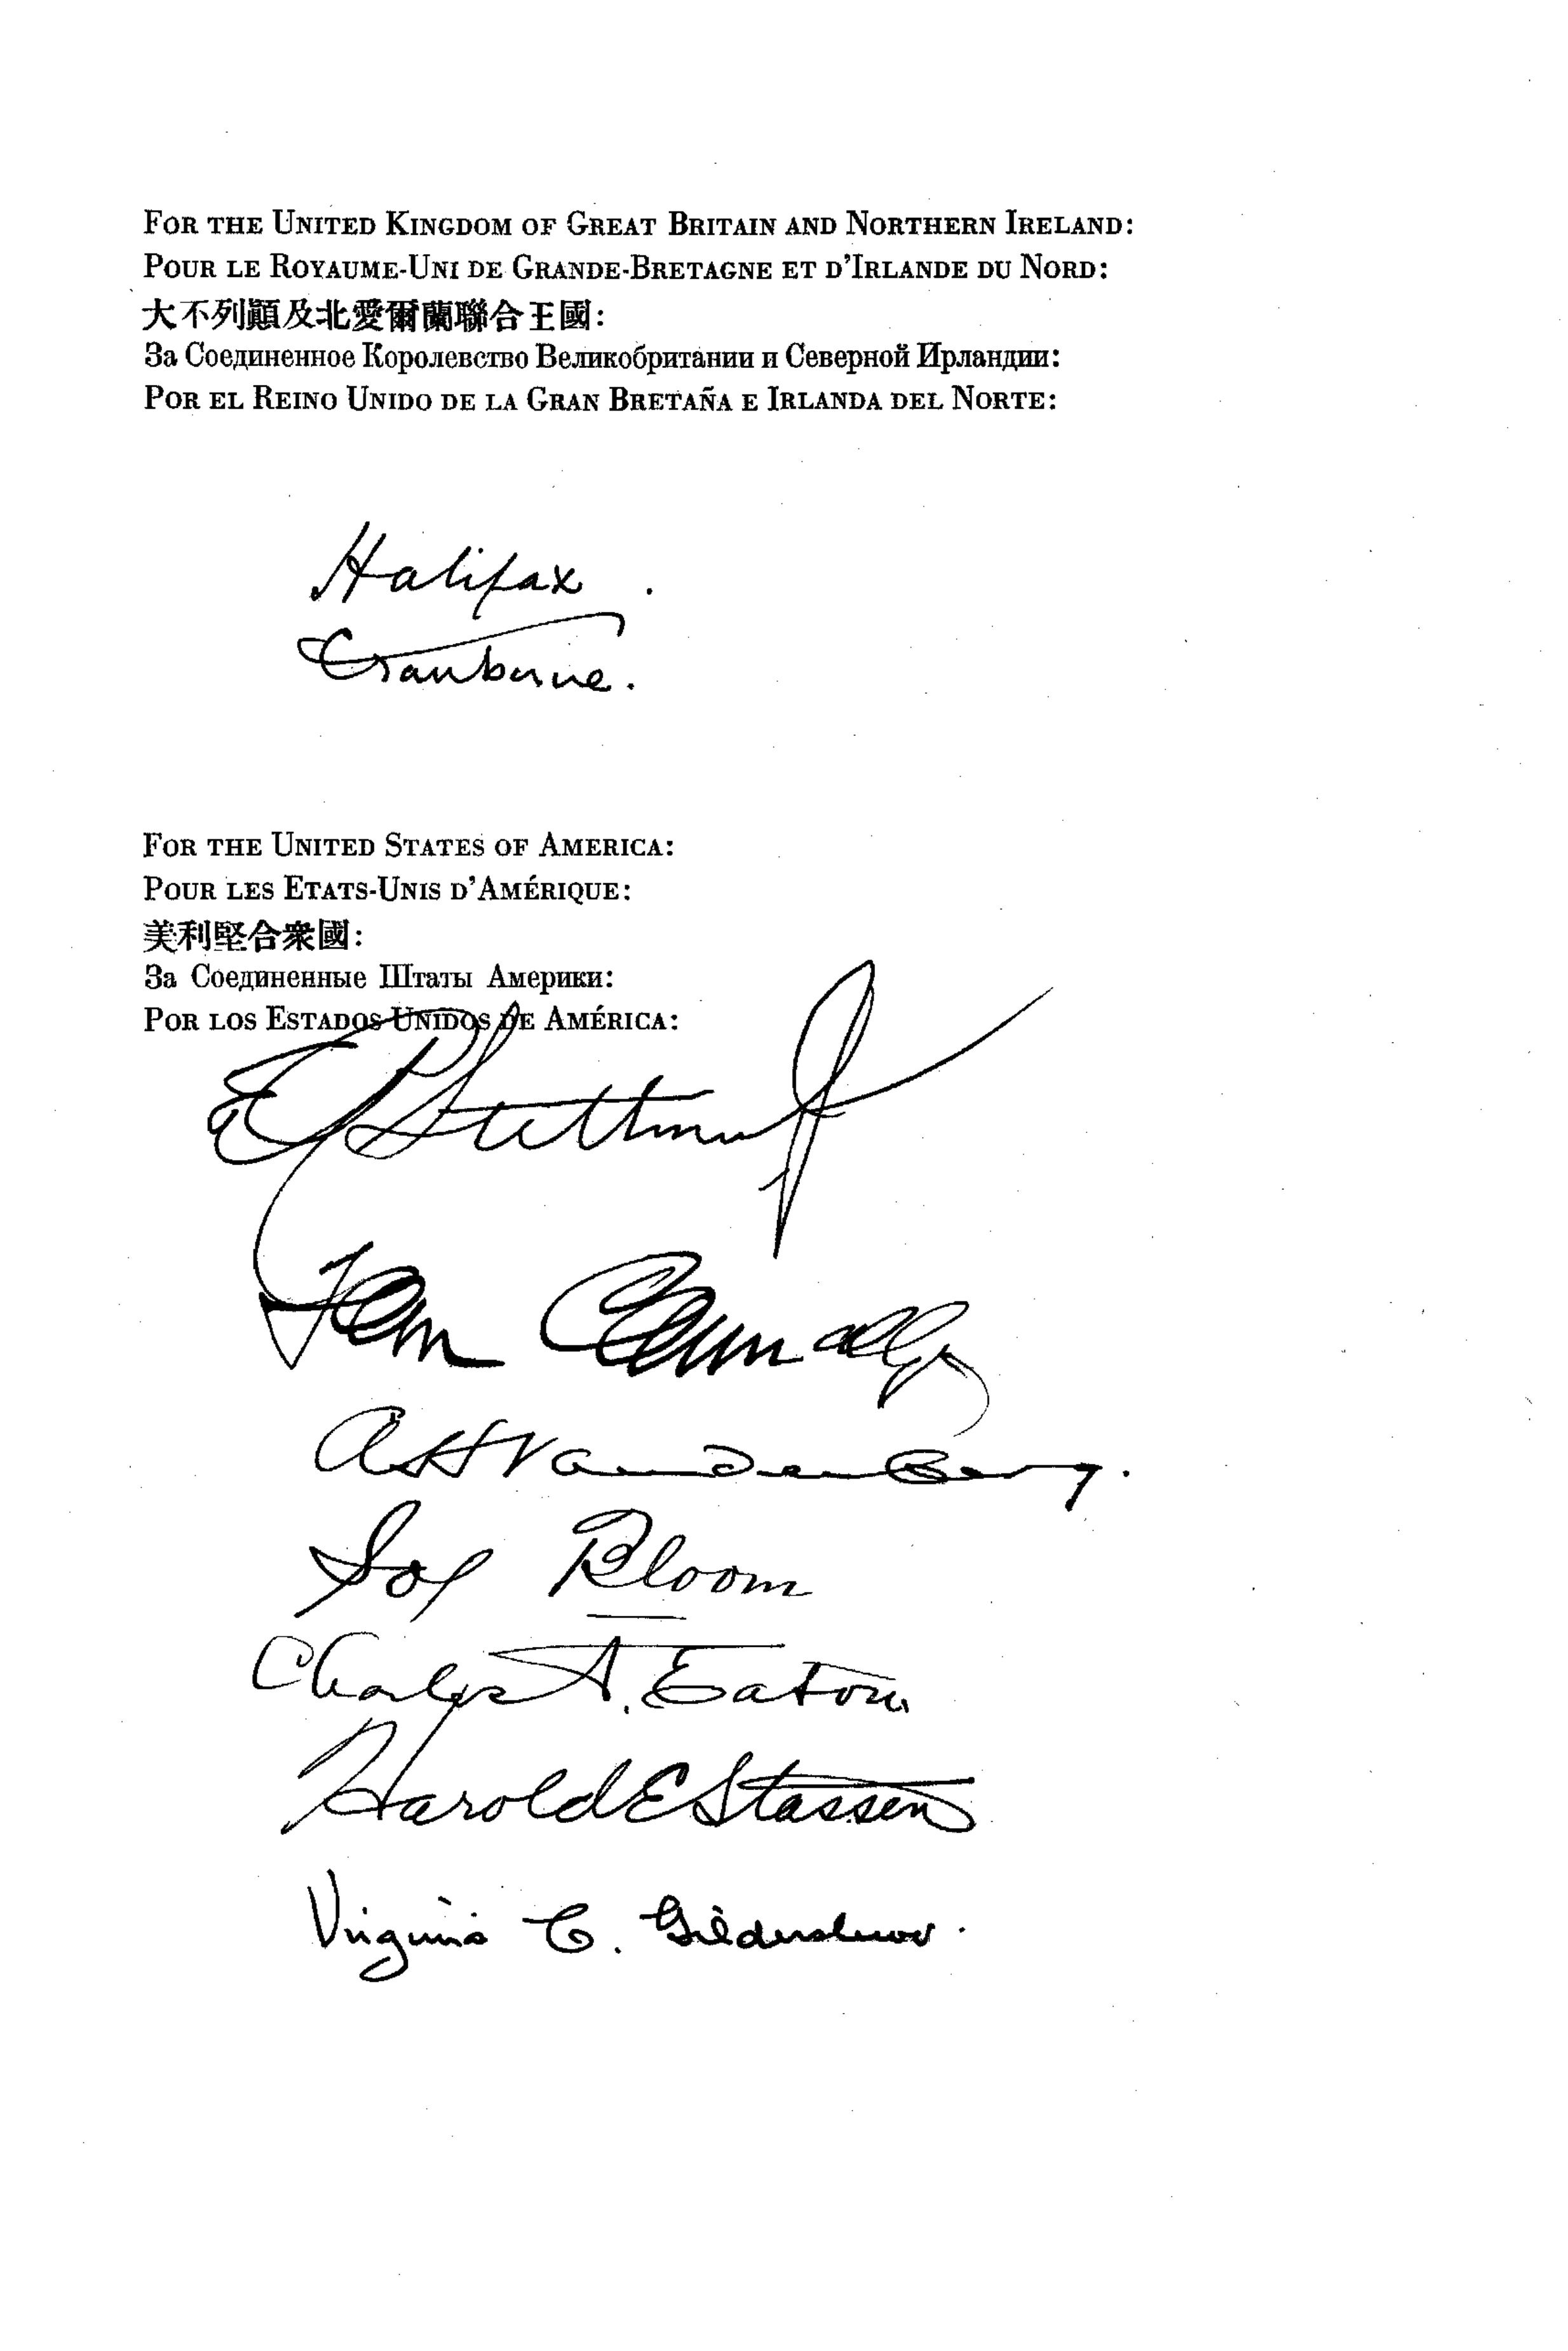 FOR THE UNITED KINGDOM OF GREAT BRITAIN AND NORTHERN IRELAND:
POUR LE ROYAUME-UNI DE GRANDE-BRETAGNE ET D'IRLANDE DU NORD:
大不列顚及北愛爾蘭聯合王國:
За Соединенное Королевство Великобритании и Северной Ирландии:
POR EL REINO UNIDO DE LA GRAN BRETAÑA E IRLANDA DEL NORTE:
Halifax.
Cranborne.
FOR THE UNITED STATES OF AMERICA:
POUR LES ETATS-UNIS D'AMÉRIQUE:
美利堅合衆國:
За Соединенные Штаты Америки:
POR LOS ESTADOS UNIDOS DE AMÉRICA:
E Stettinius Jr
Tom Connally
A H Vandenberg.
Sol Bloom
Charles A. Eaton
Harold E Stassen
Virginia C. Gildersleeve.